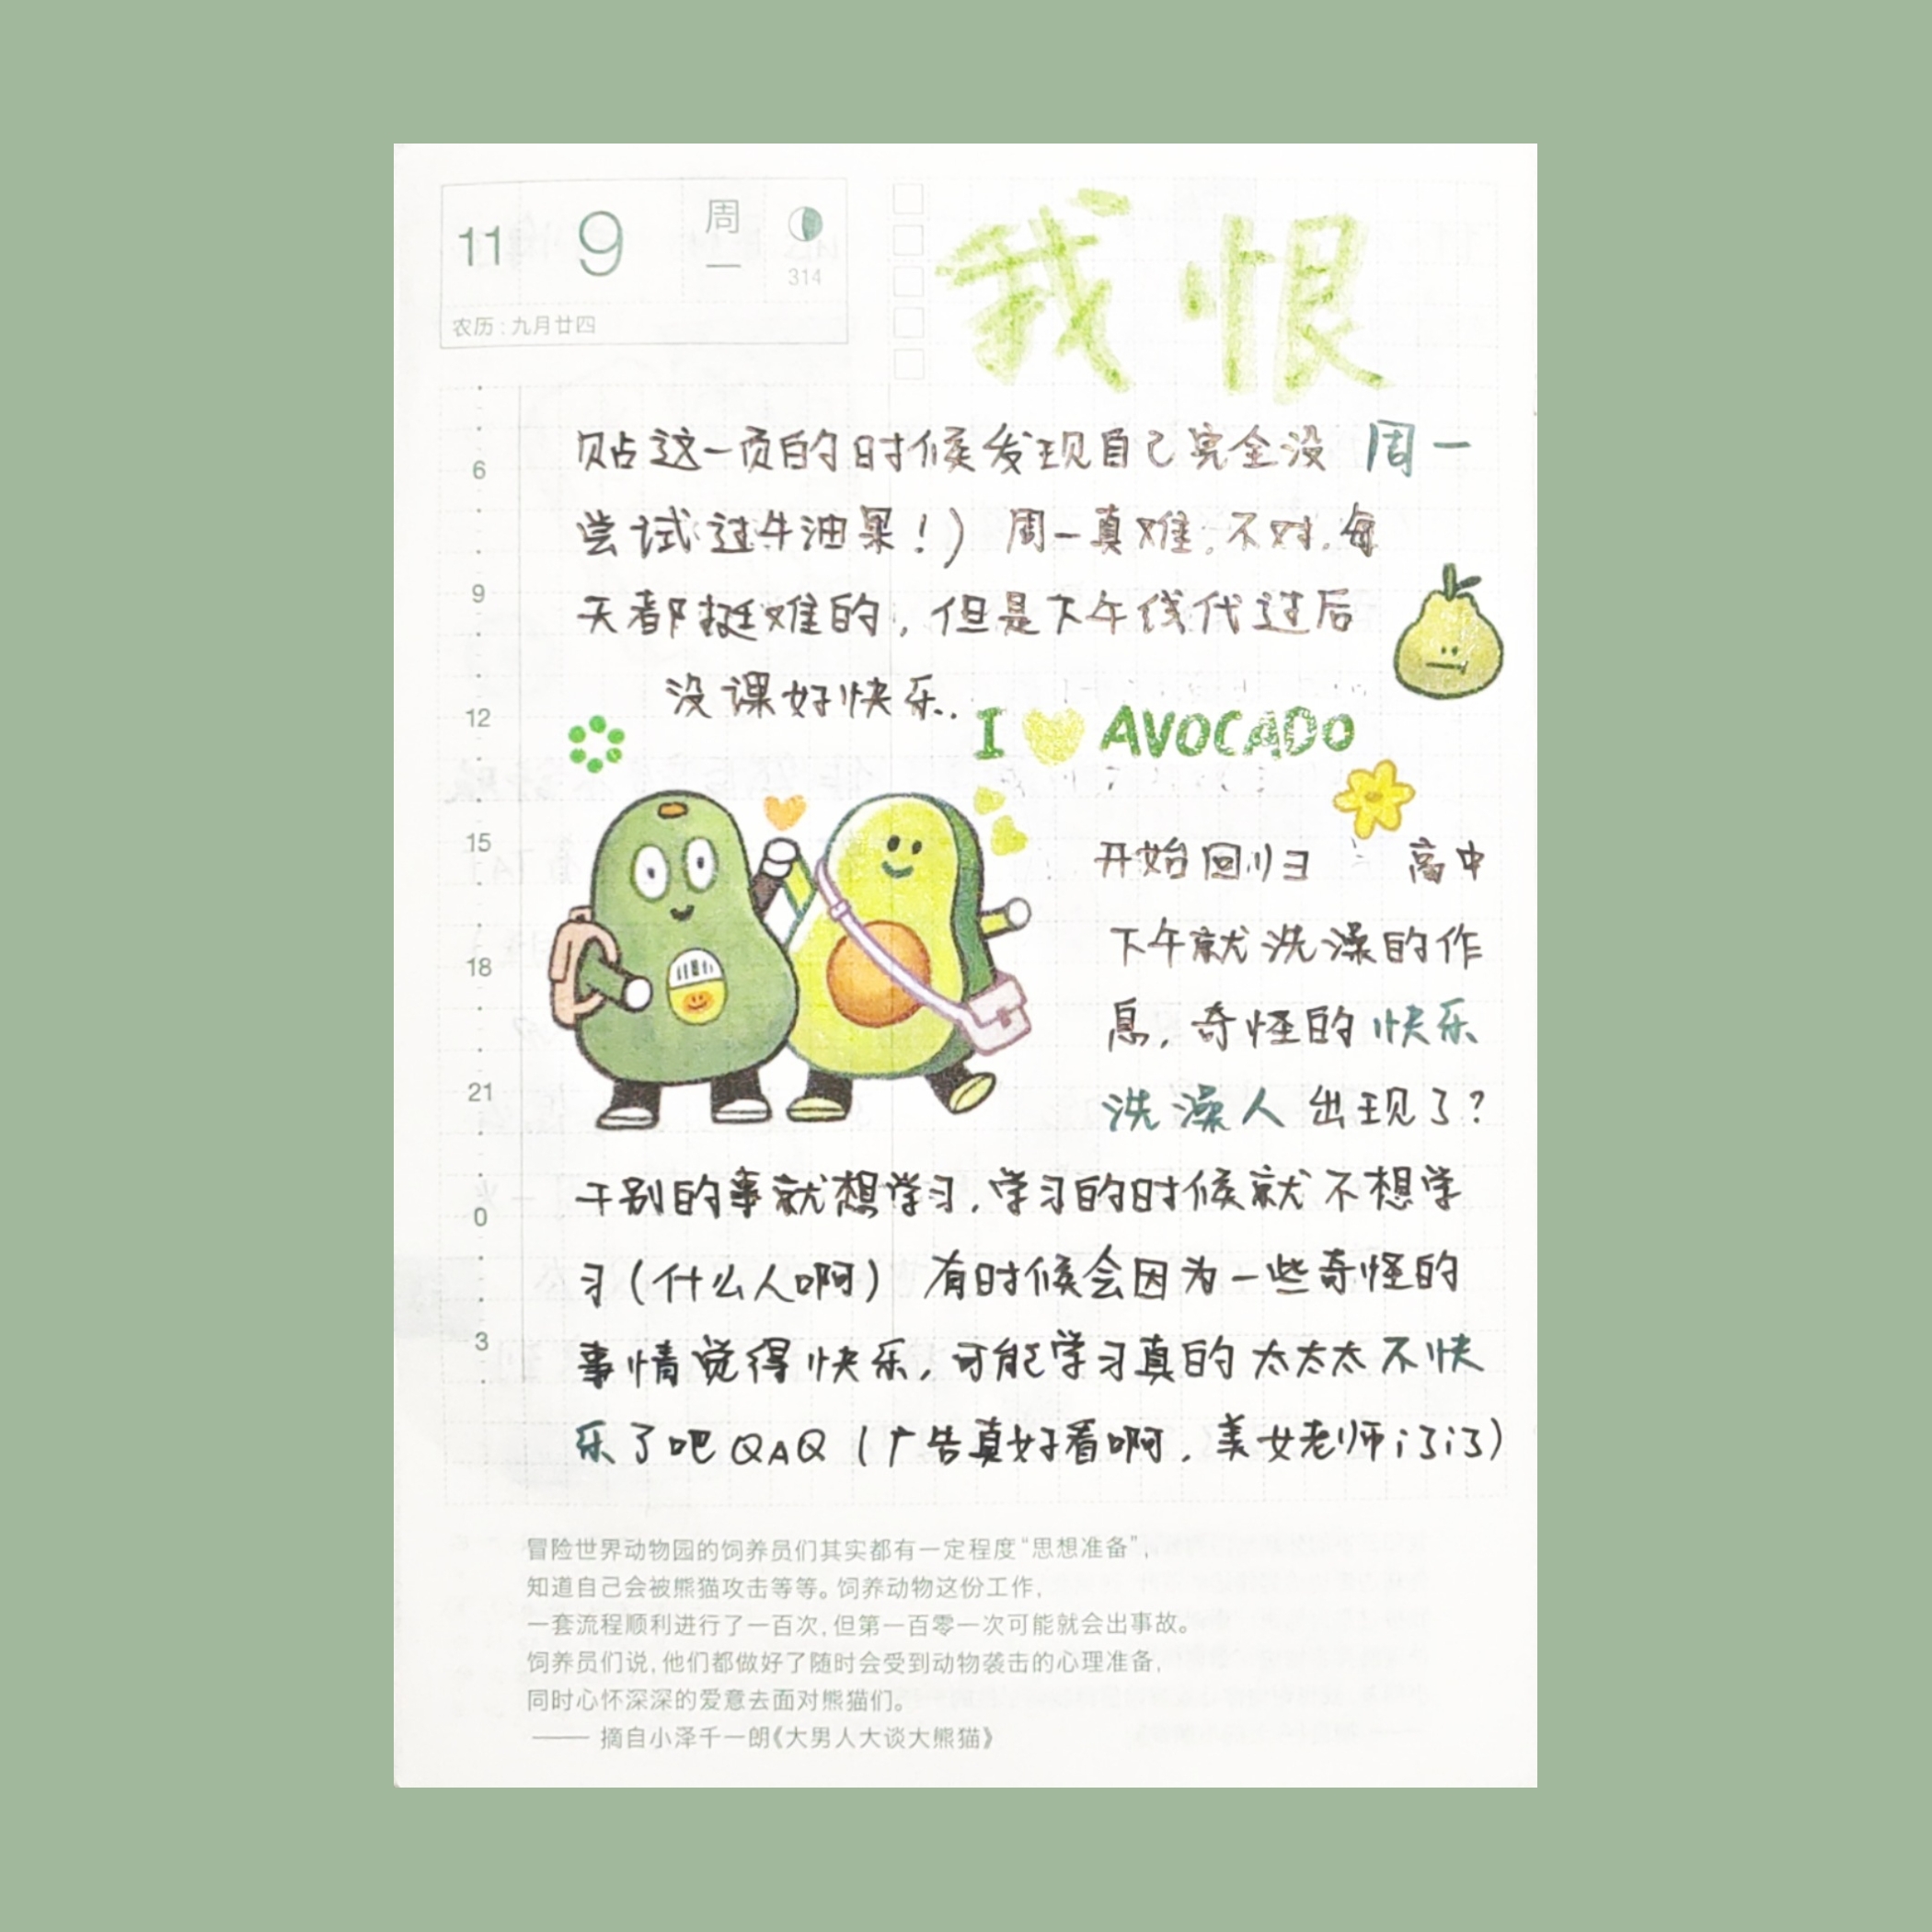 11 9 周一
314
农历：九月廿四
我恨
周一
贴这一页的时候发现自己完全没
尝试过牛油果！）周一真难，不对，每
天都挺难的，但是下午线代过后
没课好快乐.
I AVOCADO
开始回归 高中
下午就洗澡的作
息，奇怪的快乐
洗澡人出现了？
干别的事就想学习，学习的时候就不想学
习（什么人啊） 有时候会因为一些奇怪的
事情觉得快乐，可能学习真的太太太不快
乐了吧QAQ（广告真好看啊，美女老师i了i了）
6
9
12
15
18
21
0
3
冒险世界动物园的饲养员们其实都有一定程度“思想准备”，
知道自己会被熊猫攻击等等。饲养动物这份工作，
一套流程顺利进行了一百次，但第一百零一次可能就会出事故。
饲养员们说，他们都做好了随时会受到动物袭击的心理准备，
同时心怀深深的爱意去面对熊猫们。
—— 摘自小泽千一朗《大男人大谈大熊猫》